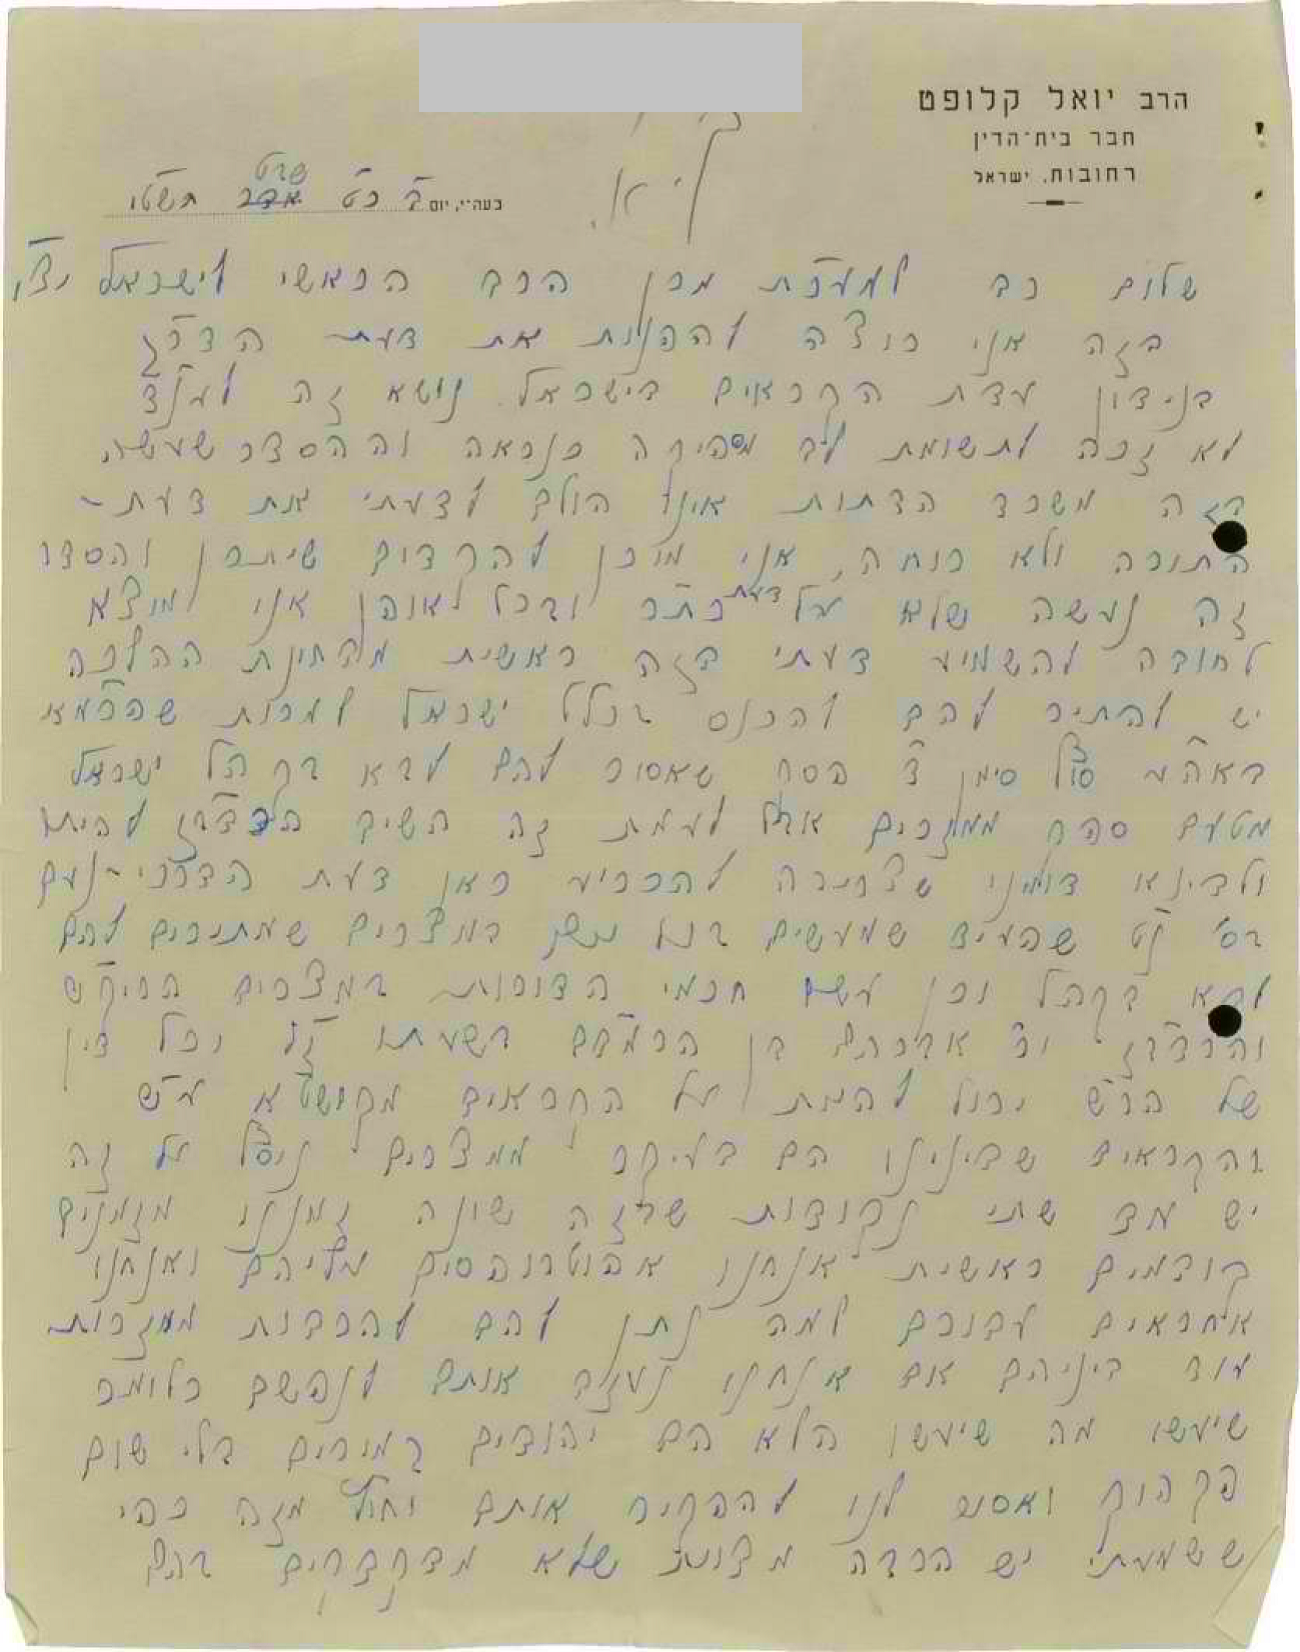 הרב יואל קלופט
חבר בית־הדין
רחובות, ישראל
בעה"י, יום ב' כ"ט אדר תשט"ו
שבט
שלום רב למערכת מרן הרב הראשי לישראל
בזה אני רוצה להפנות את דעת הדר"ג
בנידון עדת הקראים בישראל. נושא זה לע"ע
לא זכה לתשומת לב מספיקה כנראה וההסדר שעשה
בזה משרד הדתות אינו הולם לדעתי את דעת-
התורה ולא רוחה, אני מוכן להקדים שיתכן והסדר
זה נעשה שלא על דעת כת"ר ובכל לאופן אני מוצא
לחובה להשמיע דעתי בזה ראשית מבחינת ההלכה
יש להתיר להם להכנס בכלל ישראל למרות שהרמ"א
באה"ע סו"ס סימן ד' פסק שאסור להם לבא בקהל ישראל
מטעם ספק ממזרים אבל לעומת זה השיב הרדב"ז להיתר
ולדינא דומני שצריכה להכריע כאן דעת הדרכי-נועם
שהעיד שמעשים בכל יום במצרים שמתירים להם
לבא בקהל וכן עשו חכמי הדורות במצרים
והרדב"ז ור' אברהם בן הרמב"ם בשעתו וכל דין
של הר"ש יכול להיות על הקראים מקושטא
והקראים שבינינו הם בעיקר ממצרים נוסף על זה
יש עוד שתי נקודות שבזה שונה זמננו מזמנים
קודמים ראשית אנחנו אפוטרופסים עליהם ואנחנו
אחראים עבורם למה נתן להם להרבות ממזרות
עוד ביניהם אם אנחנו נעזוב אותם לנפשם כלומר
שיעשו מה שיעשו הלא הם יהודים גמורים בלי שום
פקפוק ואסור לנו להפקיר אותם וחוץ מזה כפי
ששמעתי יש הרבה שלא מדקדקים בהם